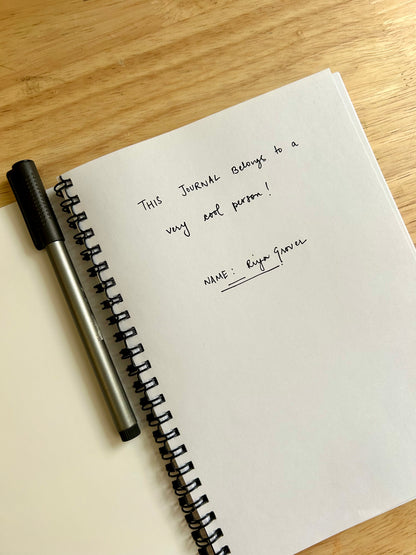 THIS JOURNAL Belongs to a
very cool person!
NAME: Riya Grover